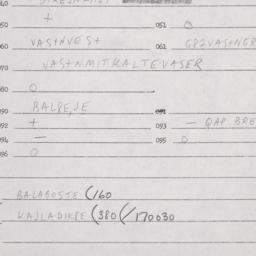 040
+ 051 O
050
060 VASTNVEST 061
070 VASTNMITKALTEVASER
080 O
090 BALBE,JE 091
092 + 093 — QAP BRE
094 — 095 O
096 O
BALABOSTE (160
KAJLADIKPE (380 (/170030